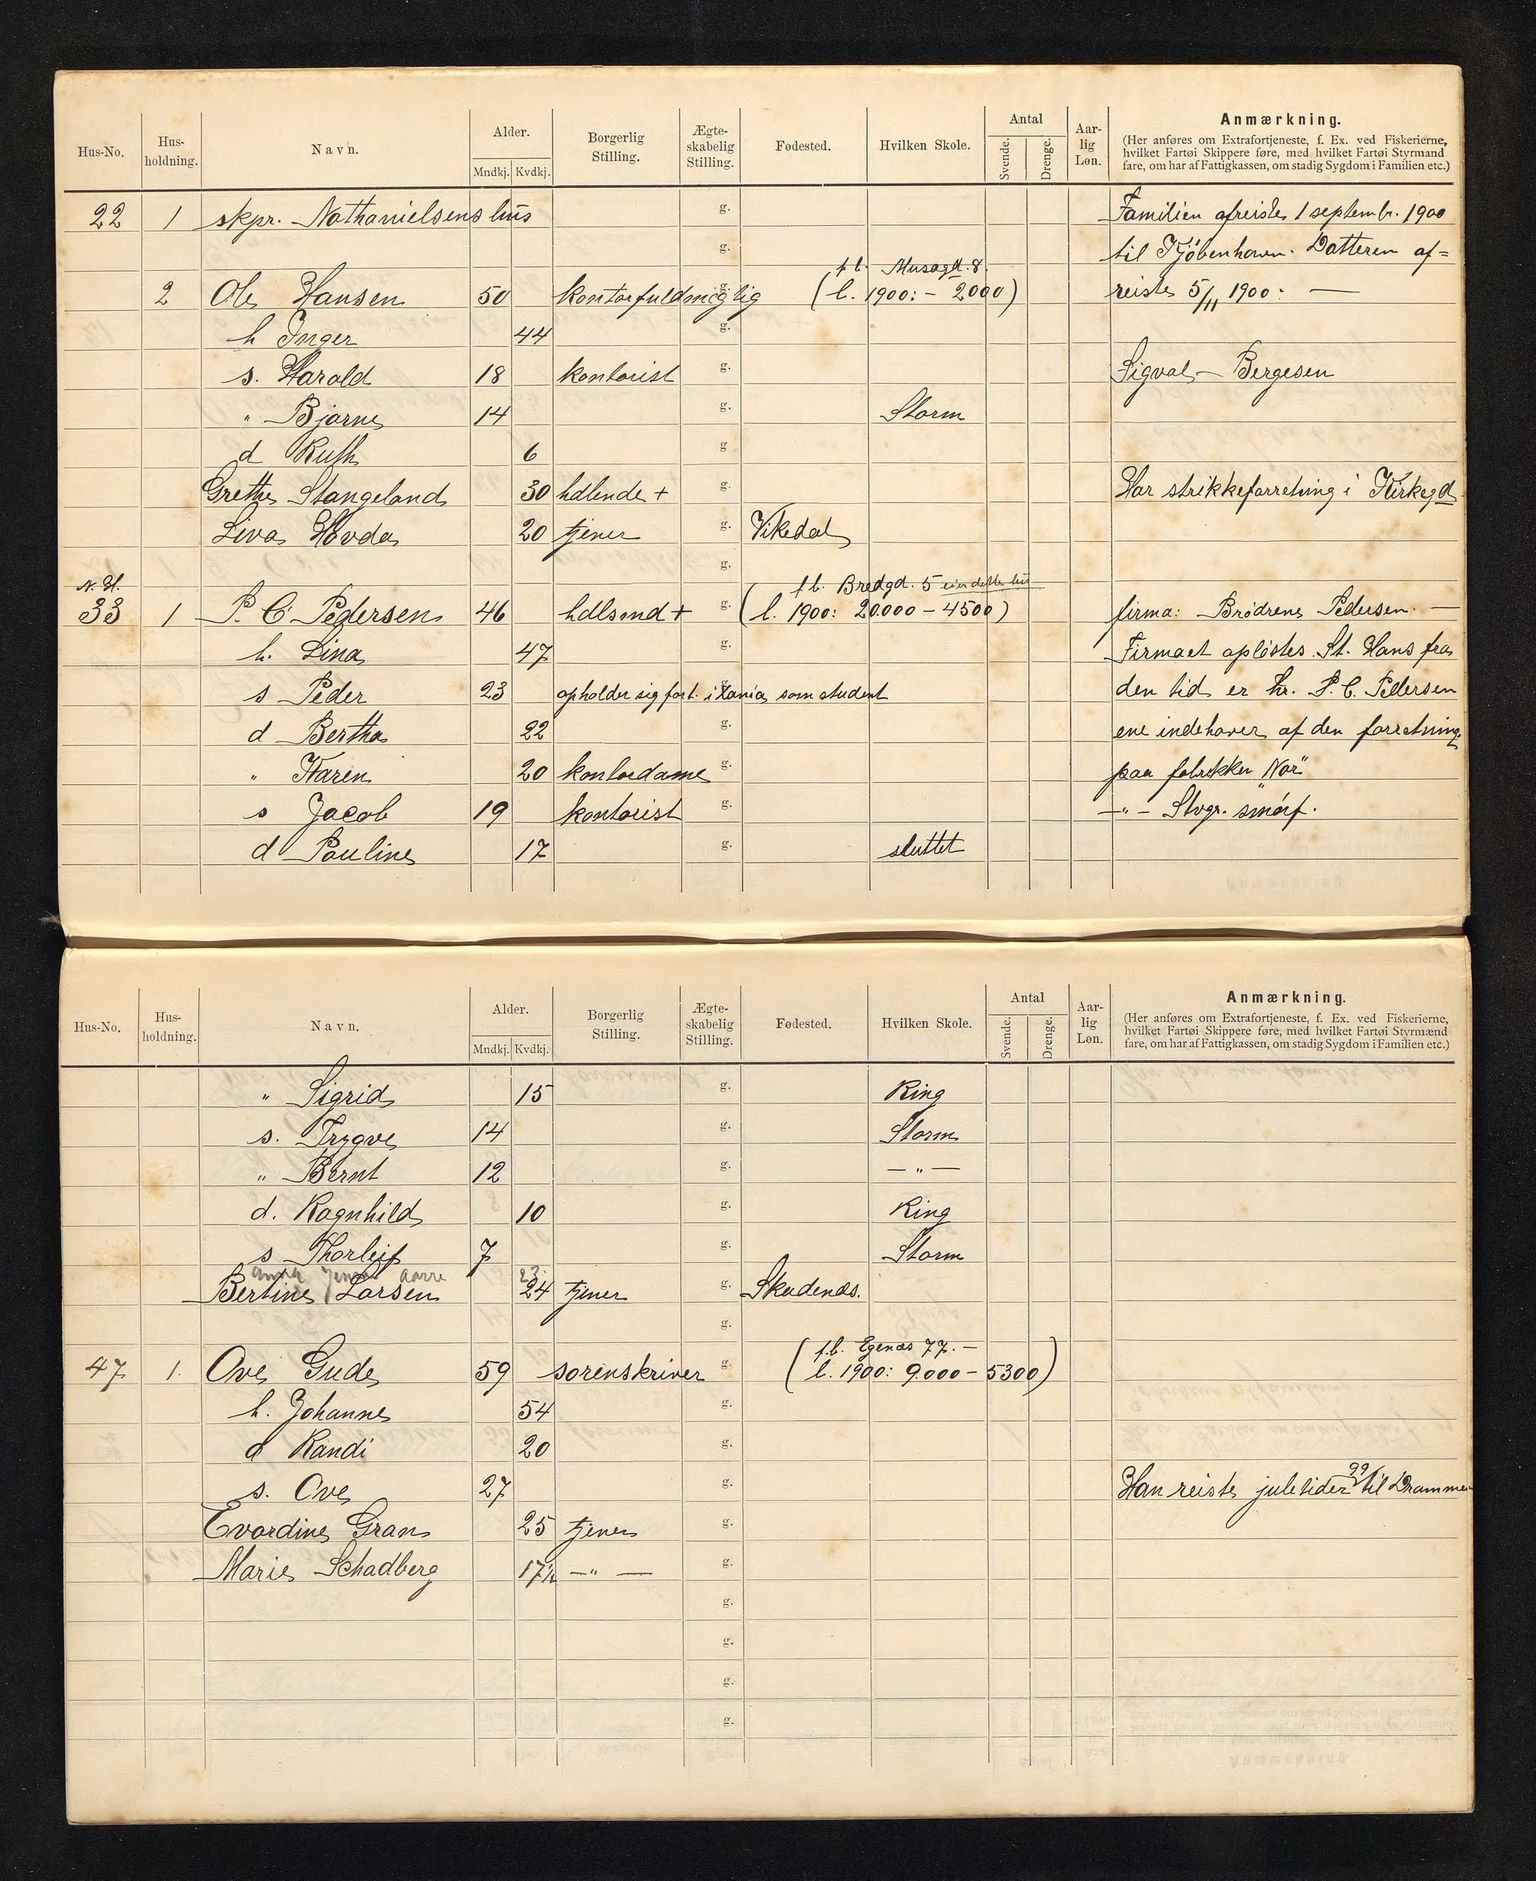 Hus-No. Hus-holdning. Navn. Alder. Mndkj. Kvdkj. Borgerlig Stilling. Ægte-skabelig Stilling. Fødested. Hvilken Skole. Antal Svende. Drenge. Aar-lig Løn. Anmærkning.
(Her anføres om Extrafortjeneste, f. Ex. ved Fiskerierne, hvilket Fartøi Skippere føre, med hvilket Fartøi Styrmænd fare, om har af Fattigkassen, om stadig Sygdom i Familien etc.)
22 1 skpr. Nathanielsens hus g. Familien afreiste 1 septembr. 1900
g. til Kjøbenhavn. Datteren af=
f. b. Musegd. 8.
2 Ole Hansen 50 kontorfuldmægtig g. (l. 1900: – 2000) reiste 5/11 1900: —
h Inger 44 g.
s. Harald 18 kontorist g. Sigval – Bergesen
" Bjarne 14 g. Storm
d Ruth 6 g
Grethe Stangeland 30 hdlende + g. Har strikkeforretning i Kirkegd.
Liva Hovda 20 tjener g. Vikedal
g.
N. H. f. b. Bredgd. 5 eier dette hus
33 1 P. C. Pedersen 46 hdlsmd + g. (l. 1900: 20.000 – 4500) firma: Brødrene Pedersen. —
h. Lina 47 g. Firmaet opløstes St. Hans fra
s Peder 23 opholder sig fort. i Xania som student den tid er hr. P. C. Pedersen
d Bertha 22 g. ene indehaver af den forretning
" Karen 20 kontordame g. paa fabrikken "Nor"
s Jacob 19 kontorist g. —"— Stvgr. smørf.
d Pauline 17 g. sluttet
Hus-No. Hus-holdning. Navn. Alder. Mndkj. Kvdkj. Borgerlig Stilling. Ægte-skabelig Stilling. Fødested. Hvilken Skole. Antal Svende. Drenge. Aar-lig Løn. Anmærkning.
(Her anføres om Extrafortjeneste, f. Ex. ved Fiskerierne, hvilket Fartøi Skippere føre, med hvilket Fartøi Styrmænd fare, om har af Fattigkassen, om stadig Sygdom i Familien etc.)
" Sigrid 15 g. Ring
s. Trygve 14 g. Storm
" Bernt 12 g. — " —
d. Ragnhild 10 g. Ring
s Thorleif 7 g. Storm
Anna Aarre 23
Bertine Larsen 24 tjener g. Skudenæs.
g.
f. b. Egenæs 77. —
47 1. Ove Gude 59 sorenskriver g. (l. 1900: 9000 – 5300)
h. Johanne 54 g.
d Randi 20 g.
s. Ove 27 g. Han reiste juletider 99 til Drammen
Evardine Grans 25 tjener g.
Marie Schadberg 17½ — " — g.
g.
g.
g.
g.